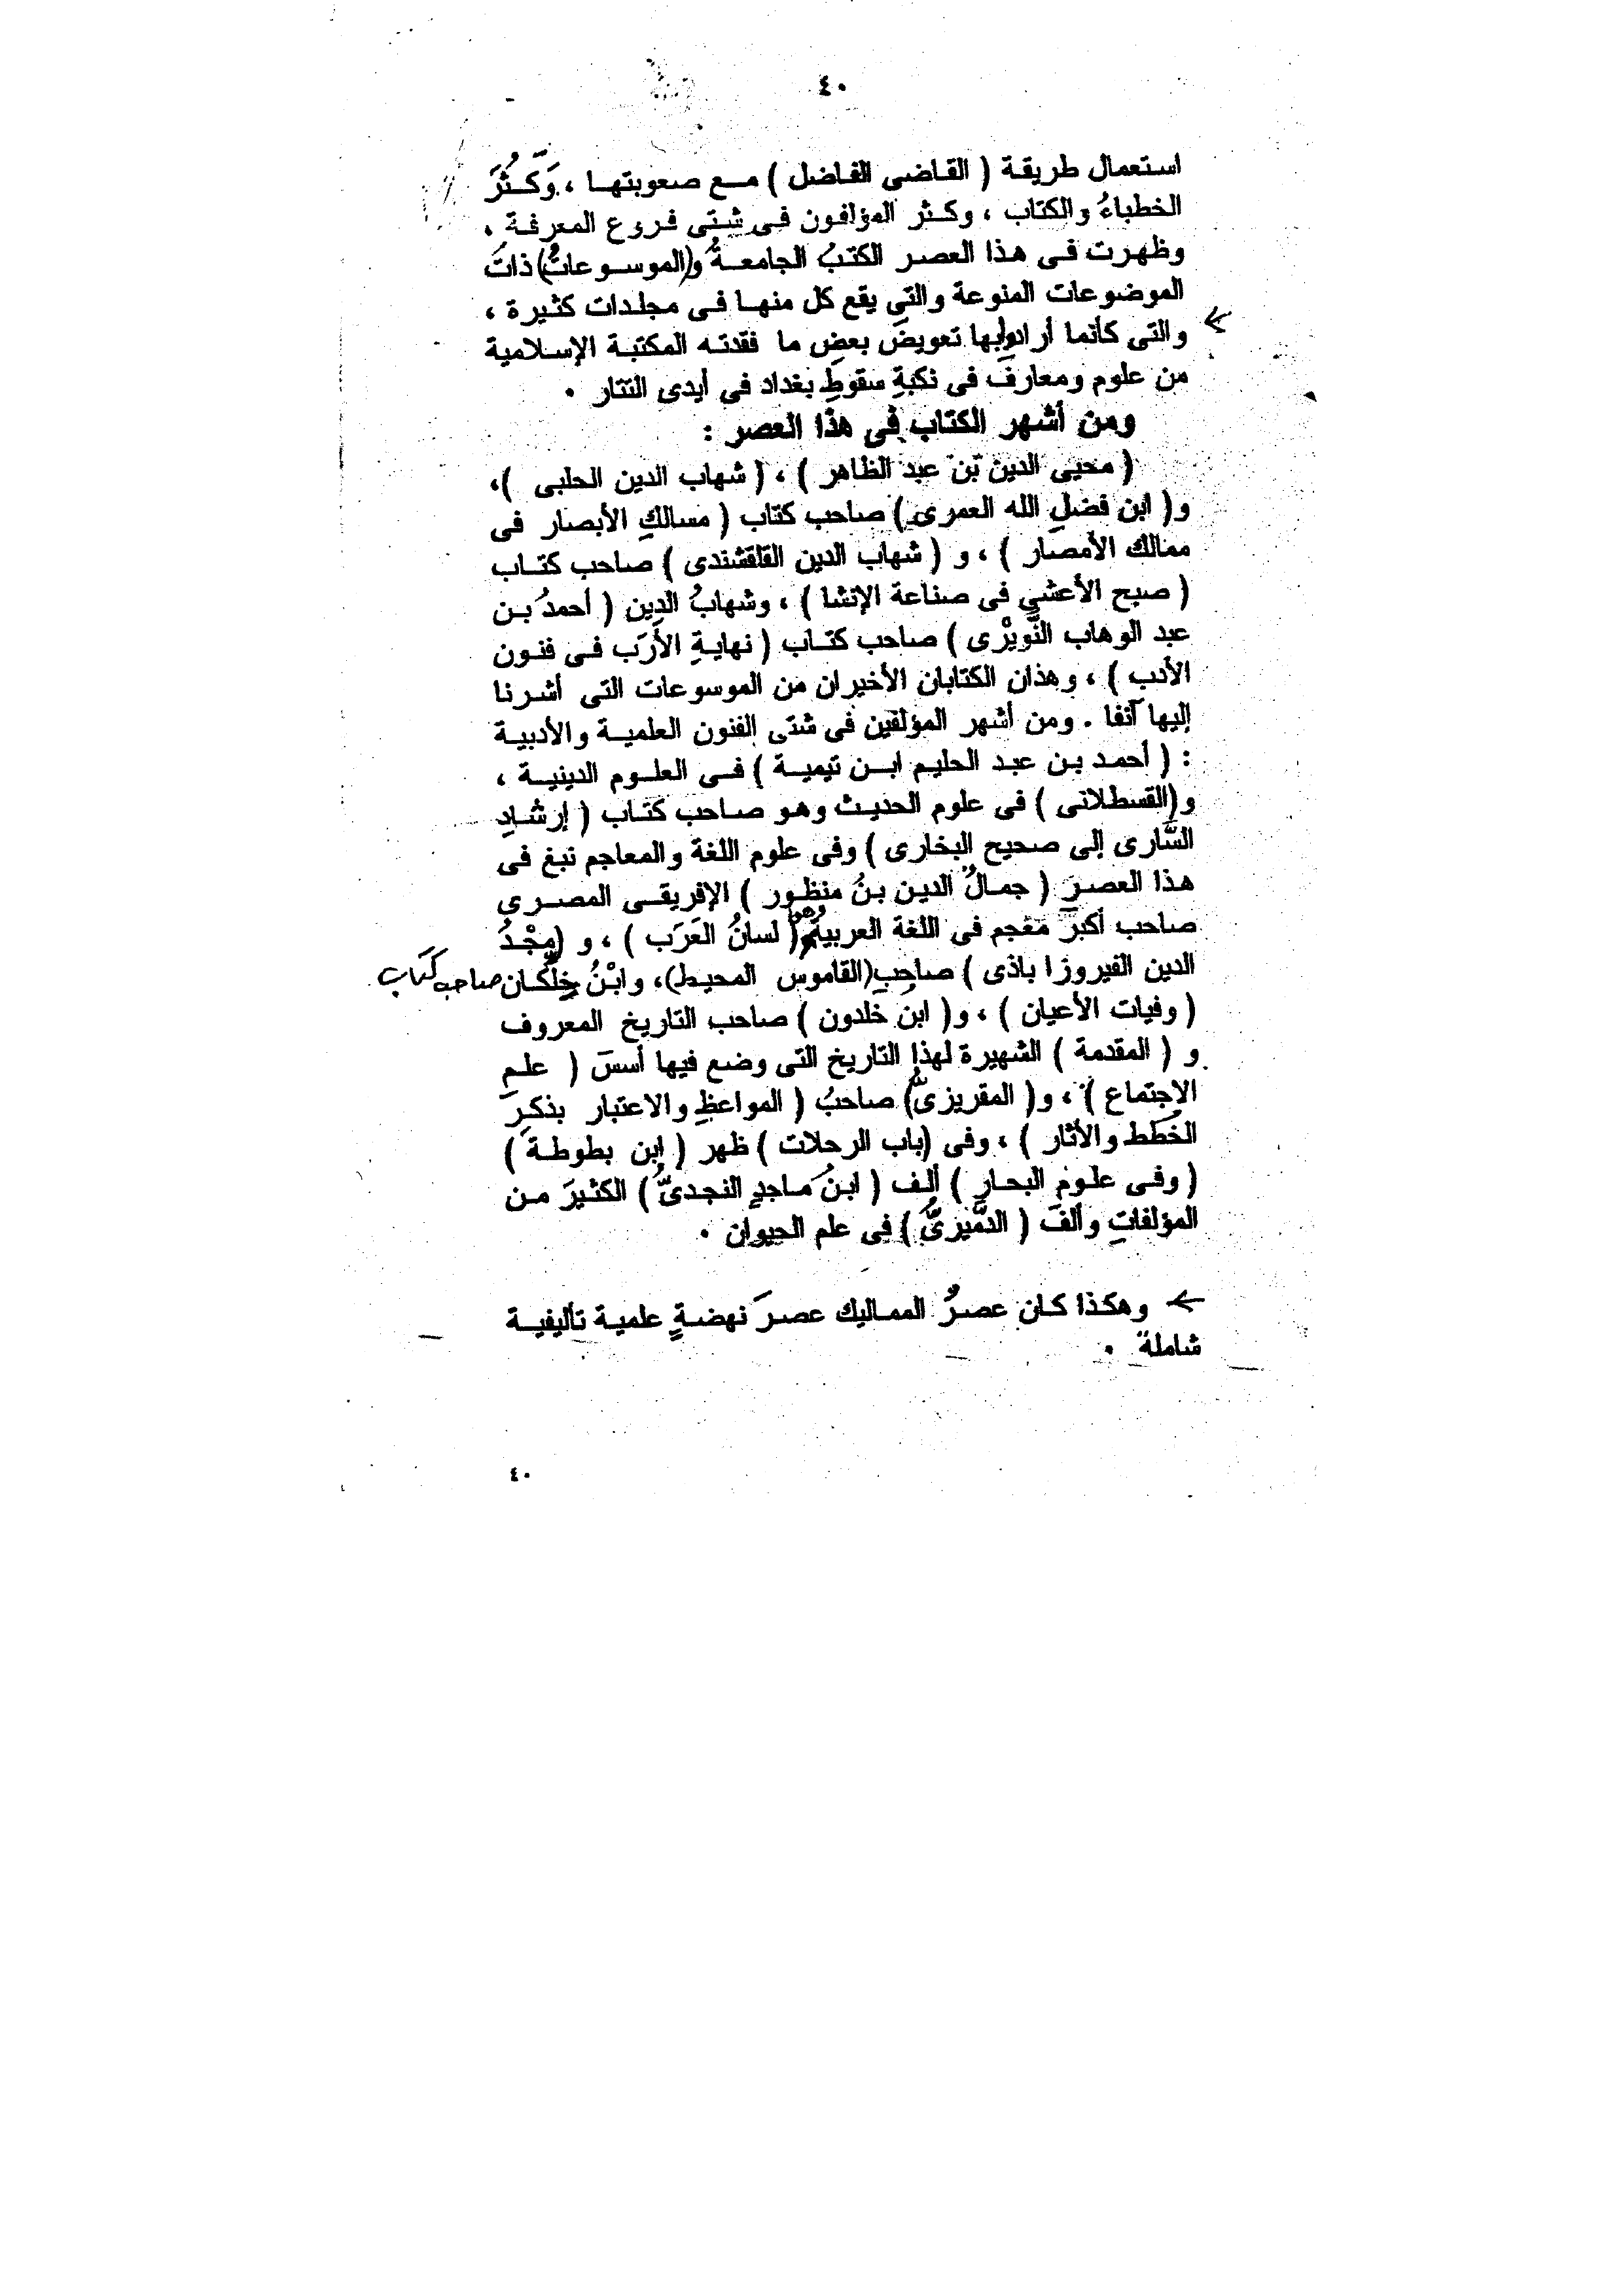 ٤٠
استعمال طريقة ( القاضى الفاضل ) مع صعوبتها ، وَكَثُرَ
الخطباءُ والكتاب ، وكثر المؤلفون فى شتى فروع المعرفة ،
وظهرت فى هذا العصر الكتبُ الجامعةُ و(الموسوعاتُ) ذاتَ
الموضوعات المنوعة والتى يقع كل منها فى مجلدات كثيرة ،
والتى كأنما أرادوا بها تعويضَ بعضِ ما فقدته المكتبة الإسلامية
من علوم ومعارفَ فى نكبةِ سقوطِ بغداد فى أيدى التتار .
ومن أشهر الكتاب فى هذا العصر :
( محيى الدين بن عبد الظاهر ) ، ( شهاب الدين الحلبى ) ،
و( ابن فضل الله العمرى ) صاحب كتاب ( مسالكِ الأبصار فى
ممالك الأمصار ) ، و ( شهاب الدين القلقشندى ) صاحب كتاب
( صبح الأعشى فى صناعة الإنشا ) ، وشهابُ الدين ( أحمدُ بن
عبد الوهاب النُّوَيْرْى ) صاحب كتاب ( نهايةِ الأرَب فى فنون
الأدب ) ، وهذان الكتابان الأخيران من الموسوعات التى أشرنا
إليها آنفا . ومن أشهر المؤلفين فى شتى الفنون العلمية والأدبية
: ( أحمد بن عبد الحليم ابن تيمية ) فى العلوم الدينية ،
و(القسطلانى ) فى علوم الحديث وهو صاحب كتاب ( إرشادِ
السَّارى إلى صحيح البخارى ) وفى علوم اللغة والمعاجم نبغ فى
هذا العصرِ ( جمالُ الدين بنُ منظور ) الإفريقى المصرى
صاحب أكبرَ معجم فى اللغة العربية وهو ( لسانُ العَرَب ) ، و (مجْدُ
الدين الفيروزا باذى ) صاحبِ (القاموس المحيط)، وابْنُ خِلِّكان صاحب كتاب
( وفيات الأعيان ) ، و( ابن خلدون ) صاحب التاريخ المعروف
و ( المقدمة ) الشهيرة لهذا التاريخ التى وضع فيها أسسَ ( علمِ
الاجتماع ) ، و( المقريزىُّ) صاحبُ ( المواعظِ والاعتبار بذكرِ
الخُطَط والأثار ) ، وفى (باب الرحلات ) ظهر ( ابن بطوطة )
( وفى علومِ البحارِ ) ألف ( ابنُ ماجدٍ النجدىُّ ) الكثيرَ من
المؤلفاتِ وألفَ ( الدَّميرىُّ ) فى علم الحيوان .
← وهكذا كان عصرُ المماليك عصرَ نهضةٍ علمية تأليفية
شاملة .
٤٠